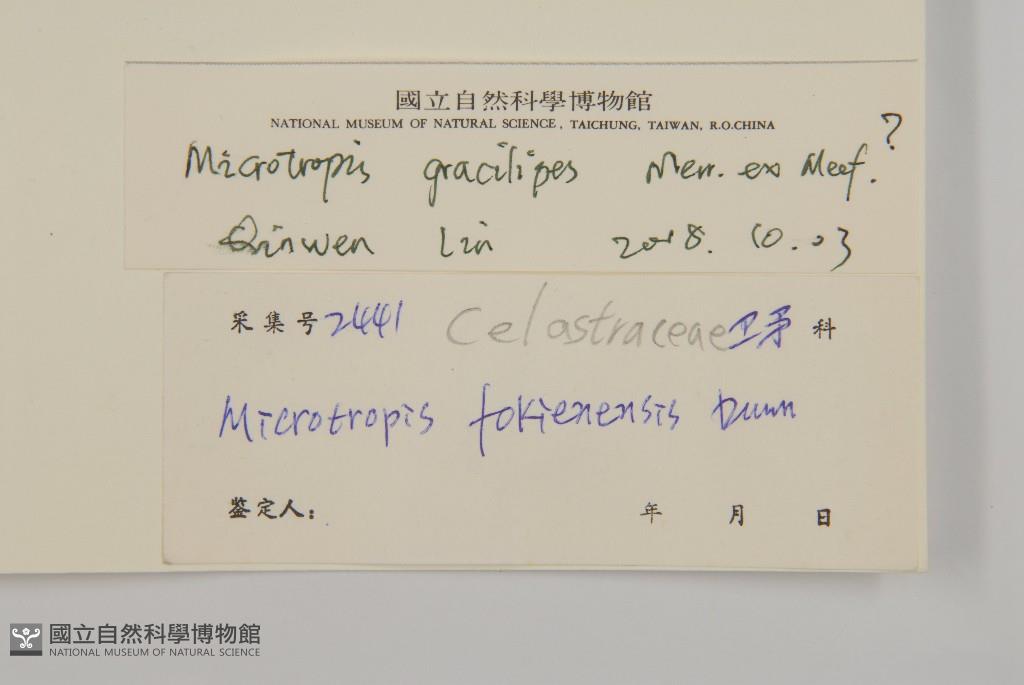 國立自然科學博物館
NATIONAL MUSEUM OF NATURAL SCIENCE, TAICHUNG, TAIWAN, R.O.CHINA
Microtropis gracilipes Merr. ex Meef. ?
Qinwen Lin 2018. 10. 03
采集号 2441 Celastraceae 卫矛 科
Microtropis fokienensis Dunn
鉴定人: 年 月 日
國立自然科學博物館
NATIONAL MUSEUM OF NATURAL SCIENCE